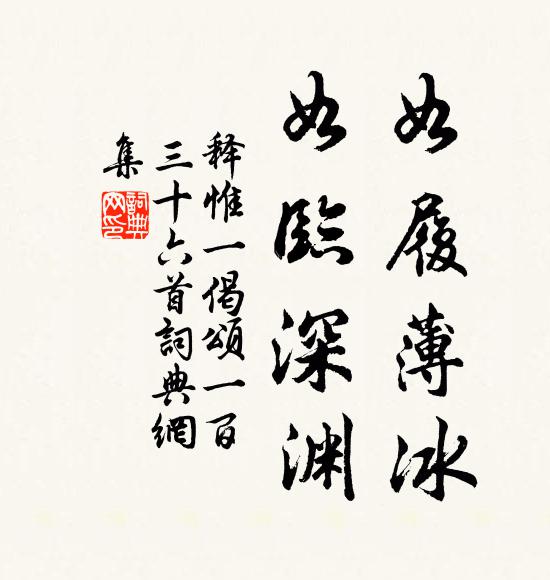 如履薄冰
如臨深渊
释惟一偈頌一百
三十六首詞典網
集
詞典
网印